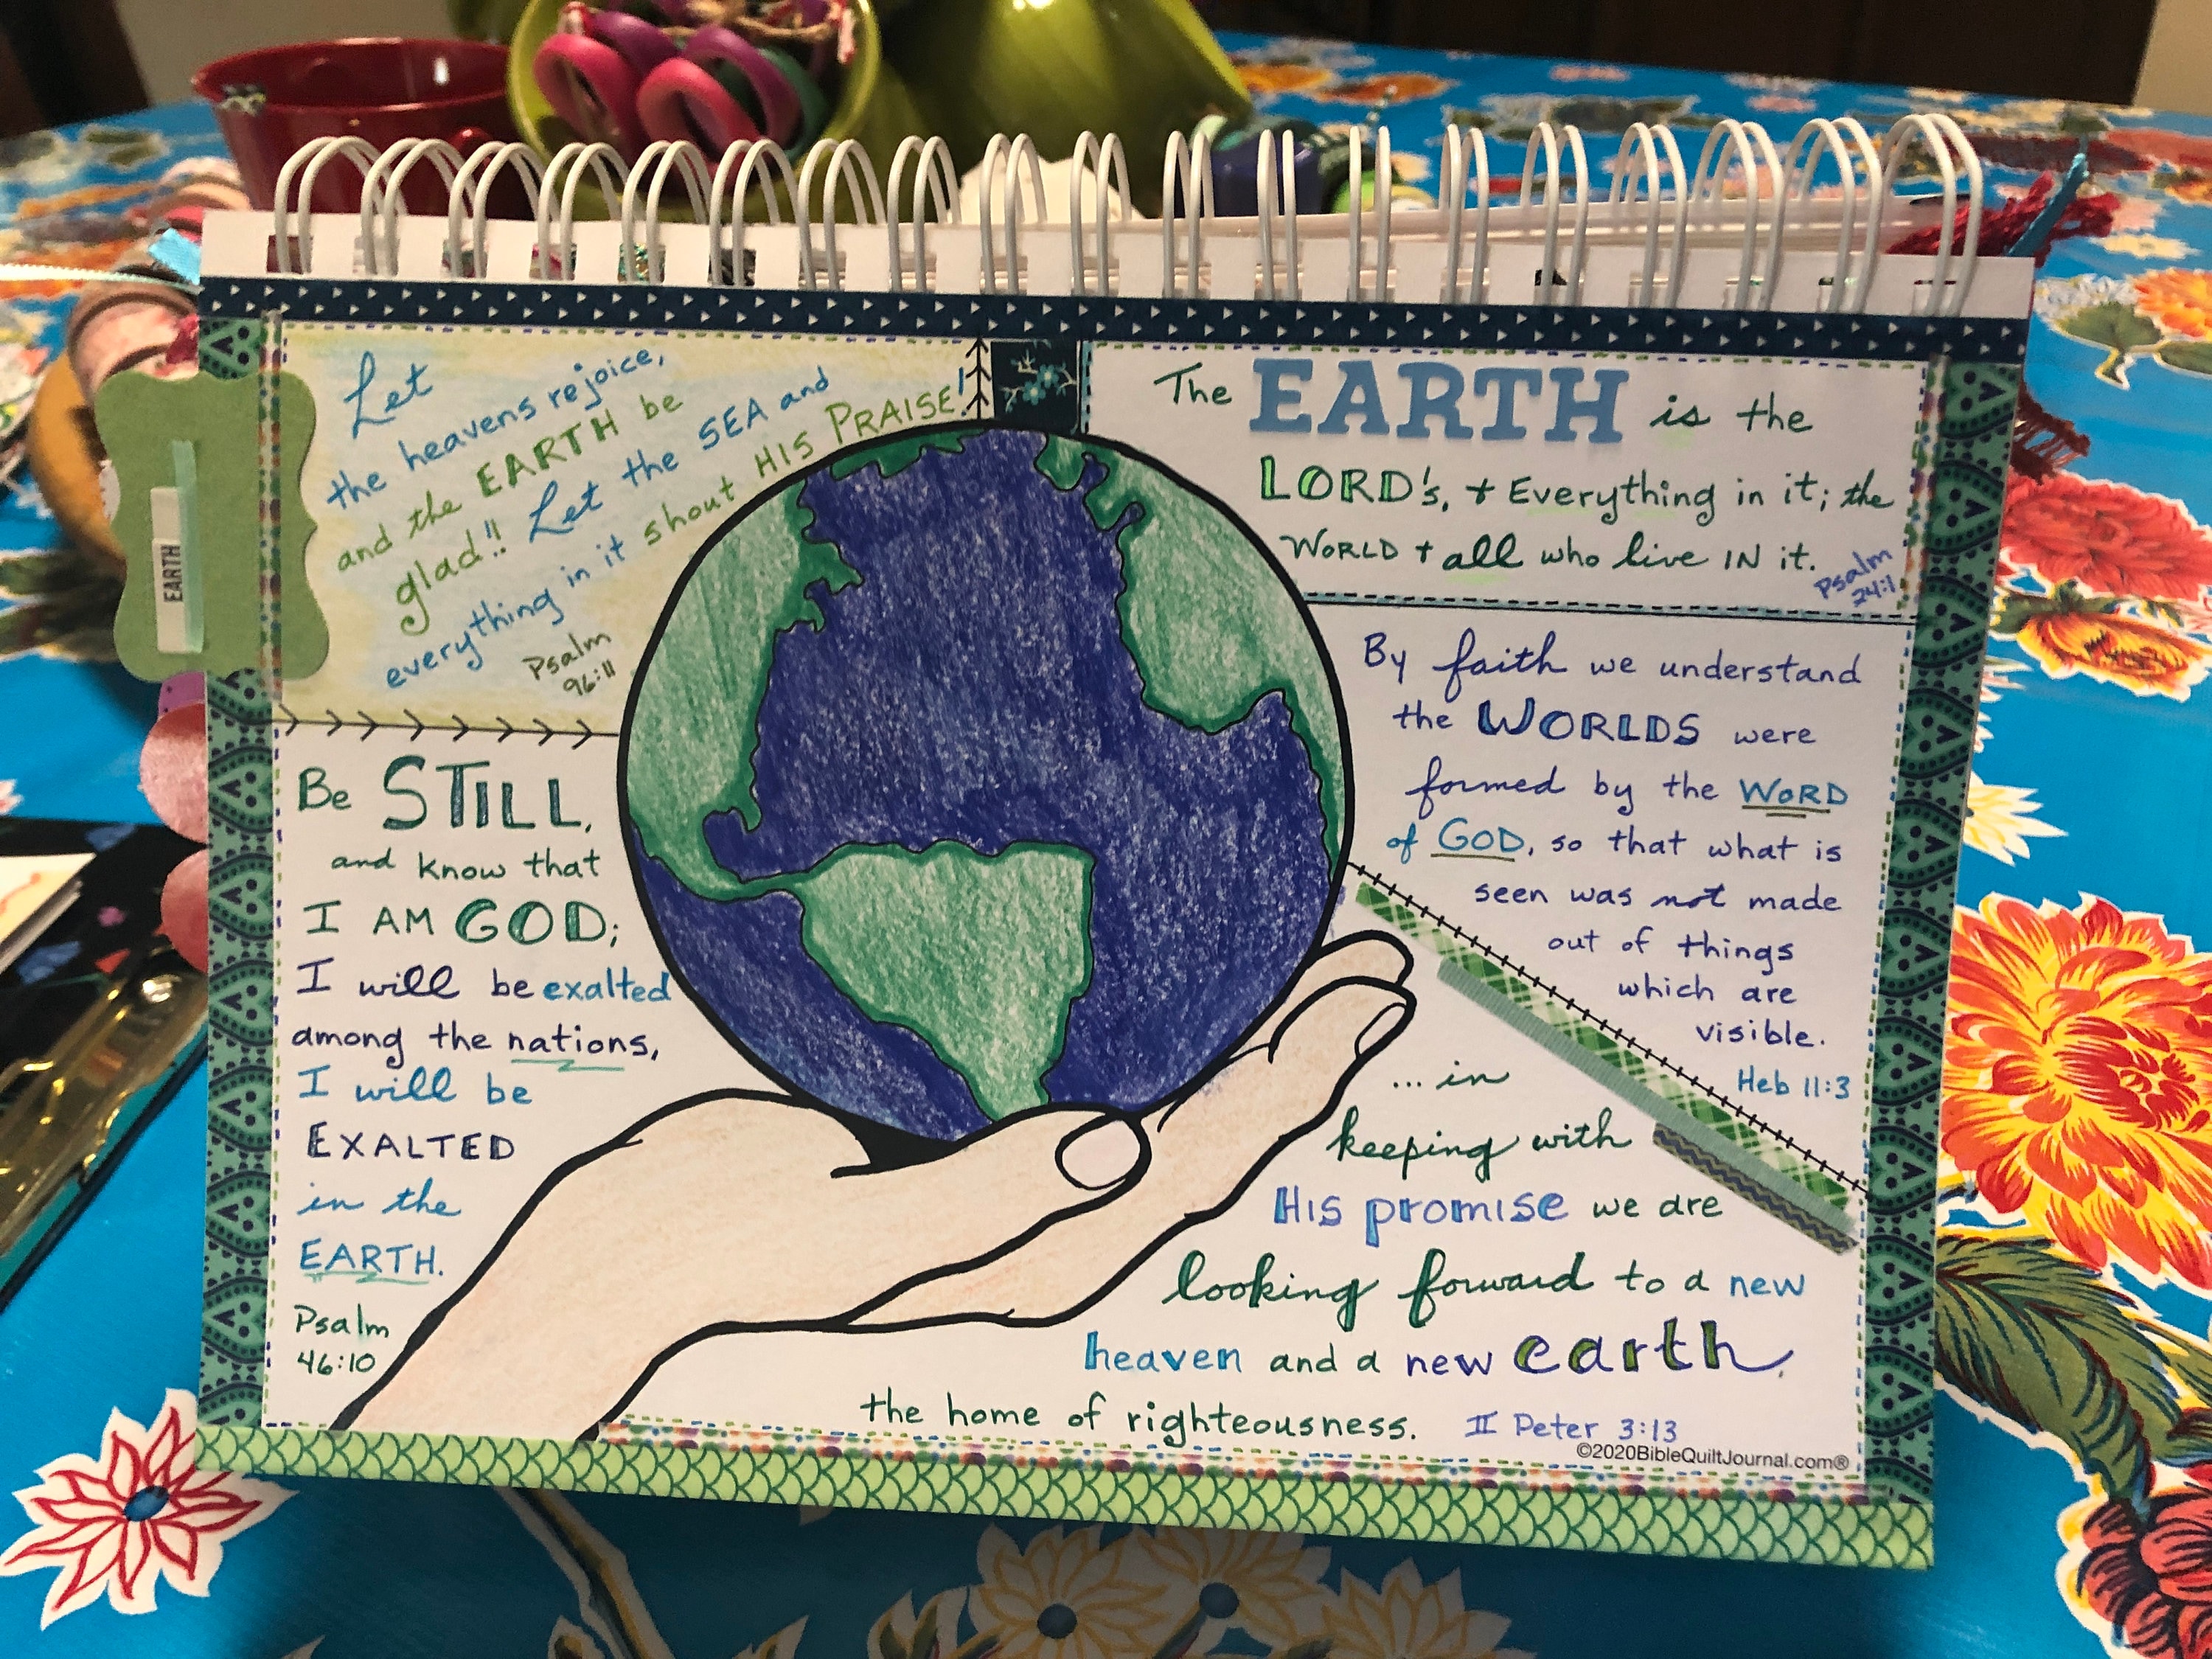 EARTH
Let
the heavens rejoice,
and the EARTH be
glad!! Let the SEA and
everything in it shout HIS PRAISE!
Psalm
96:11
The EARTH is the
LORD's, + Everything in it; the
WORLD + all who live IN it.
Psalm
24:1
Be STILL,
and know that
I AM GOD;
I will be exalted
among the nations,
I will be
EXALTED
in the
EARTH.
Psalm
46:10
By faith we understand
the WORLDS were
formed by the WORD
of GOD, so that what is
seen was not made
out of things
which are
visible.
Heb 11:3
... in
keeping with
His promise we are
looking forward to a new
heaven and a new earth,
the home of righteousness. II Peter 3:13
©2020BibleQuiltJournal.com®